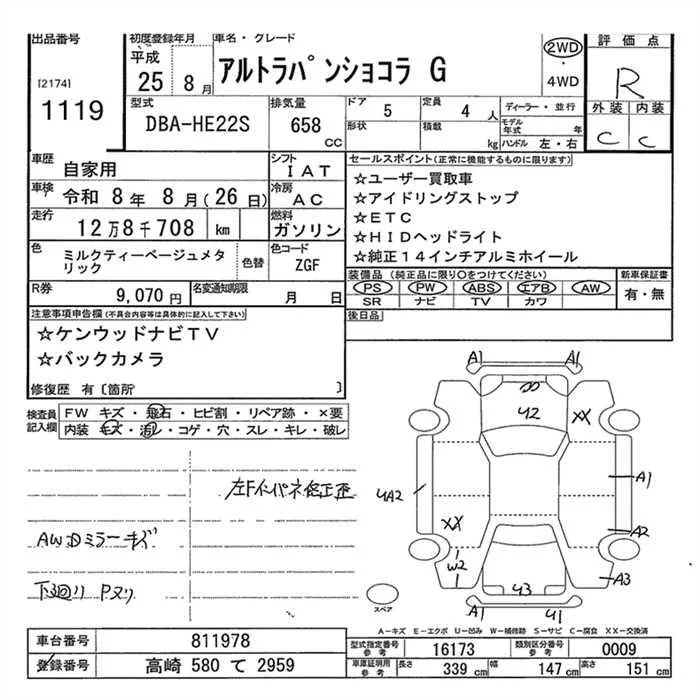 出品番号
[2174]
1119
初度登録年月
平成
25 8月
車名・グレード
アルトラパンショコラ G
2WD
・
4WD
評価点
R
外装 内装
C C
型式
DBA-HE22S
排気量
658
CC
ドア
5
定員
4人
形状
積載
kg
ディーラー・並行
モデル年式 年
ハンドル 左・右
車歴
自家用
シフト
IAT
車検
令和 8年 8月(26日)
冷房
AC
走行
12万8千708 km
燃料
ガソリン
色
ミルクティーベージュメタリック
色替
色コード
ZGF
R券
9,070円
名変通知期限
月 日
セールスポイント(正常に機能するものに限ります)
☆ユーザー買取車
☆アイドリングストップ
☆ETC
☆HIDヘッドライト
☆純正14インチアルミホイール
装備品(純正品に限り○をつけてください)
PS PW ABS エアB AW
SR ナビ TV カワ
新車保証書
有・無
後日品
注意事項申告欄(不具合内容等は具体的に記入して下さい)
☆ケンウッドナビTV
☆バックカメラ
修復歴 有〔箇所 〕
検査員記入欄
FW キズ・飛石・ヒビ割・リペア跡・×要
内装 キズ・汚レ・コゲ・穴・スレ・キレ・破レ
左Fインパネ修正歪
AWDミラーキズ
下廻り Pヌリ
A1 A1
U2
XX
A1
UA2
A2
XX
W2
A3
U3
A1 U1
スペア
A-キズ E-エクボ U-凹み W-補修跡 S-サビ C-腐食 XX-交換済
車台番号
811978
登録番号
高崎 580 て 2959
型式指定番号
参考
16173
類別区分番号
参考
0009
車庫証明用
参考
長さ
339 cm
幅
147 cm
高さ
151 cm